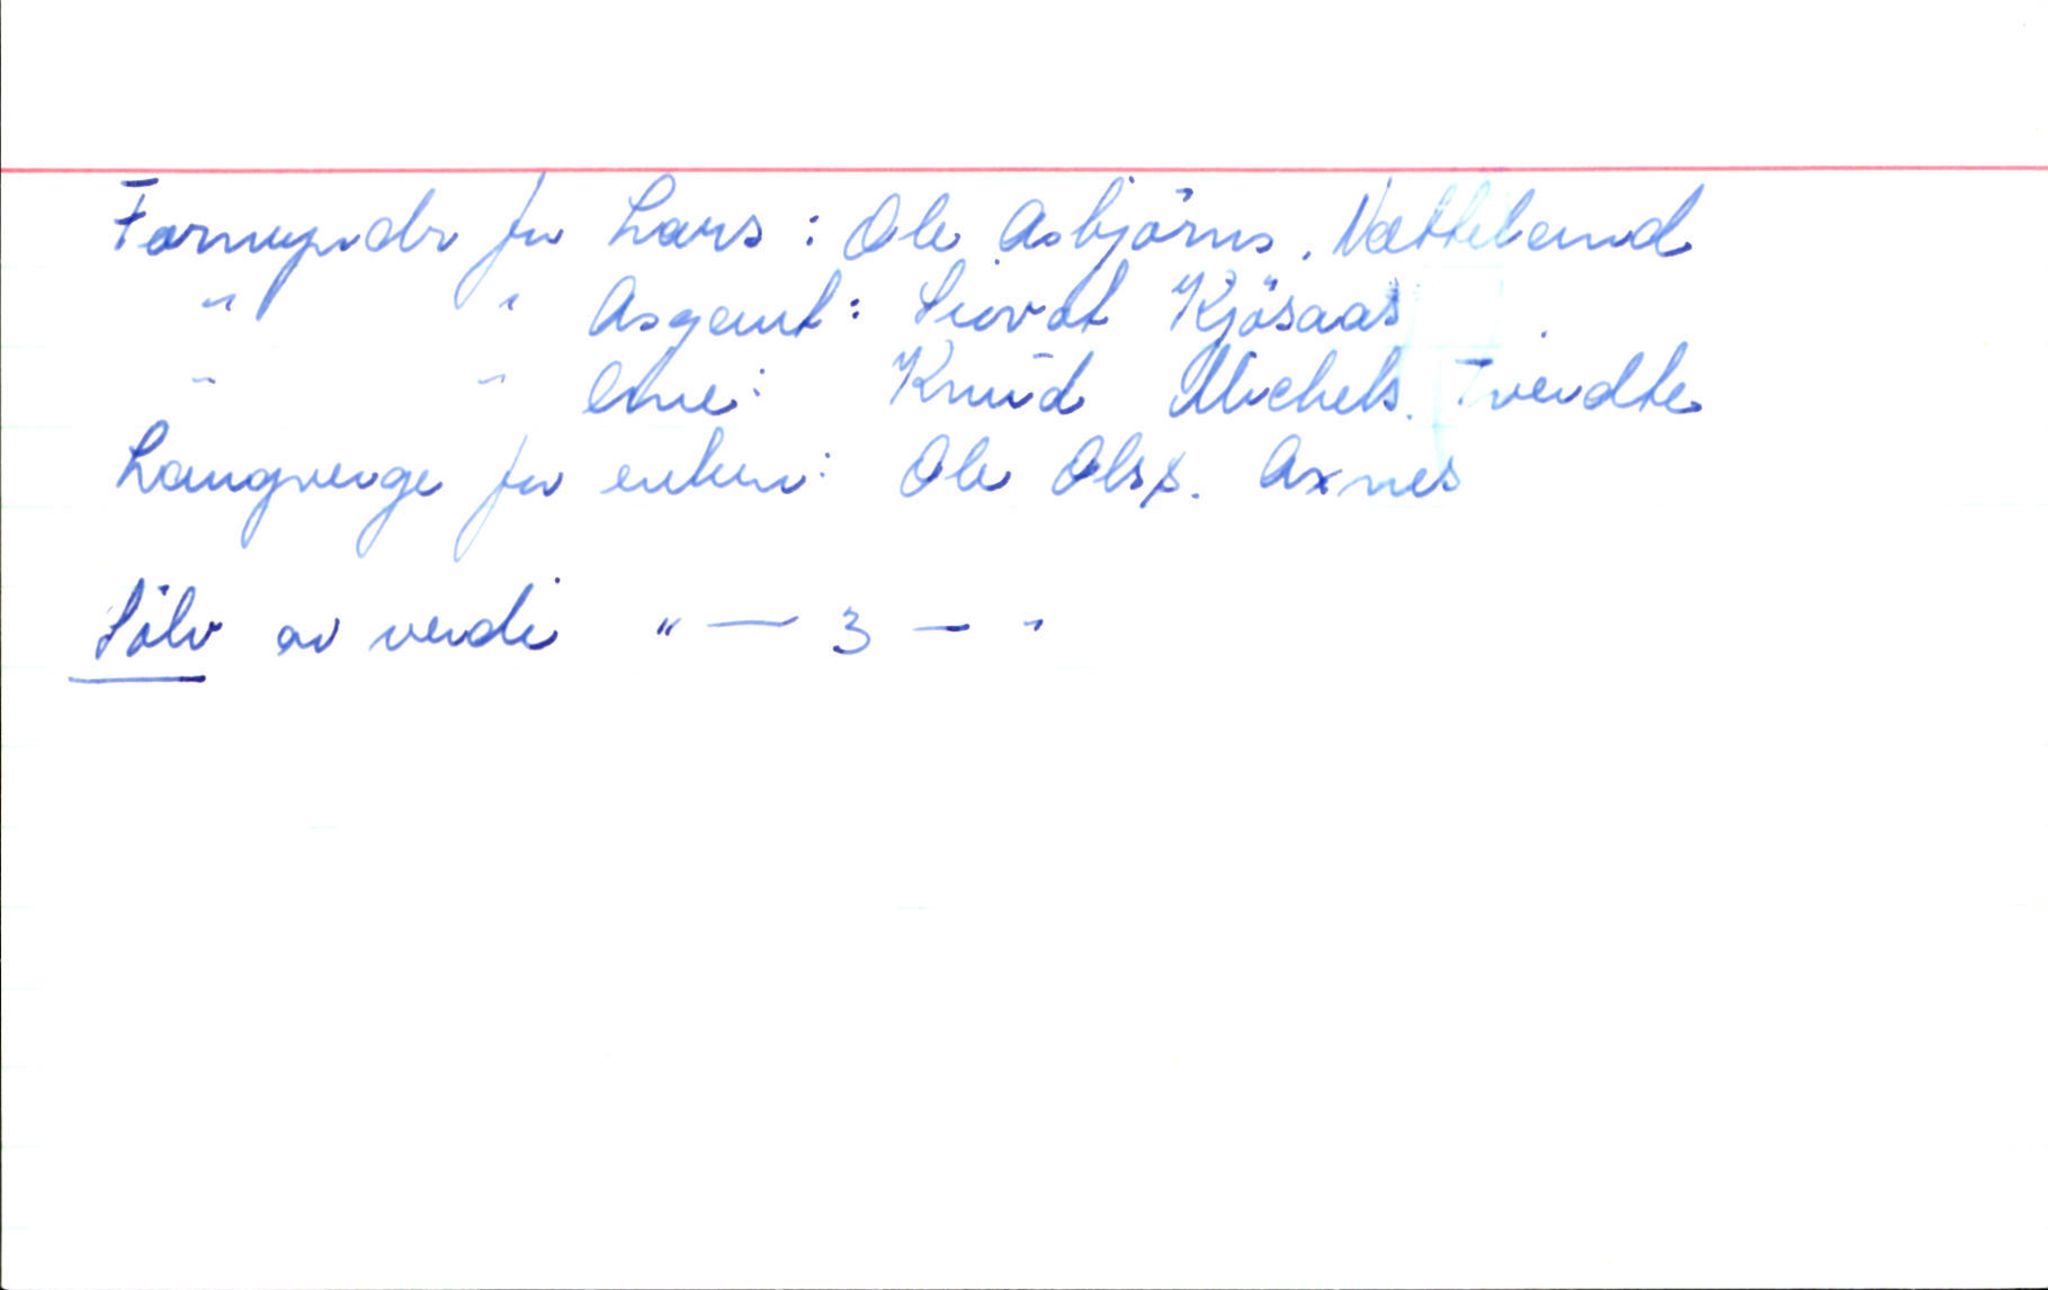 Formynder for Lars : Ole Asbjörns. Nætteland
" " Asgaut : Siovat Kjösaas
" " Ane : Knud Michels. Tvedte
Laugverge for enken : Ole Olss. Axnes
Sölv av verdi " — 3 — "